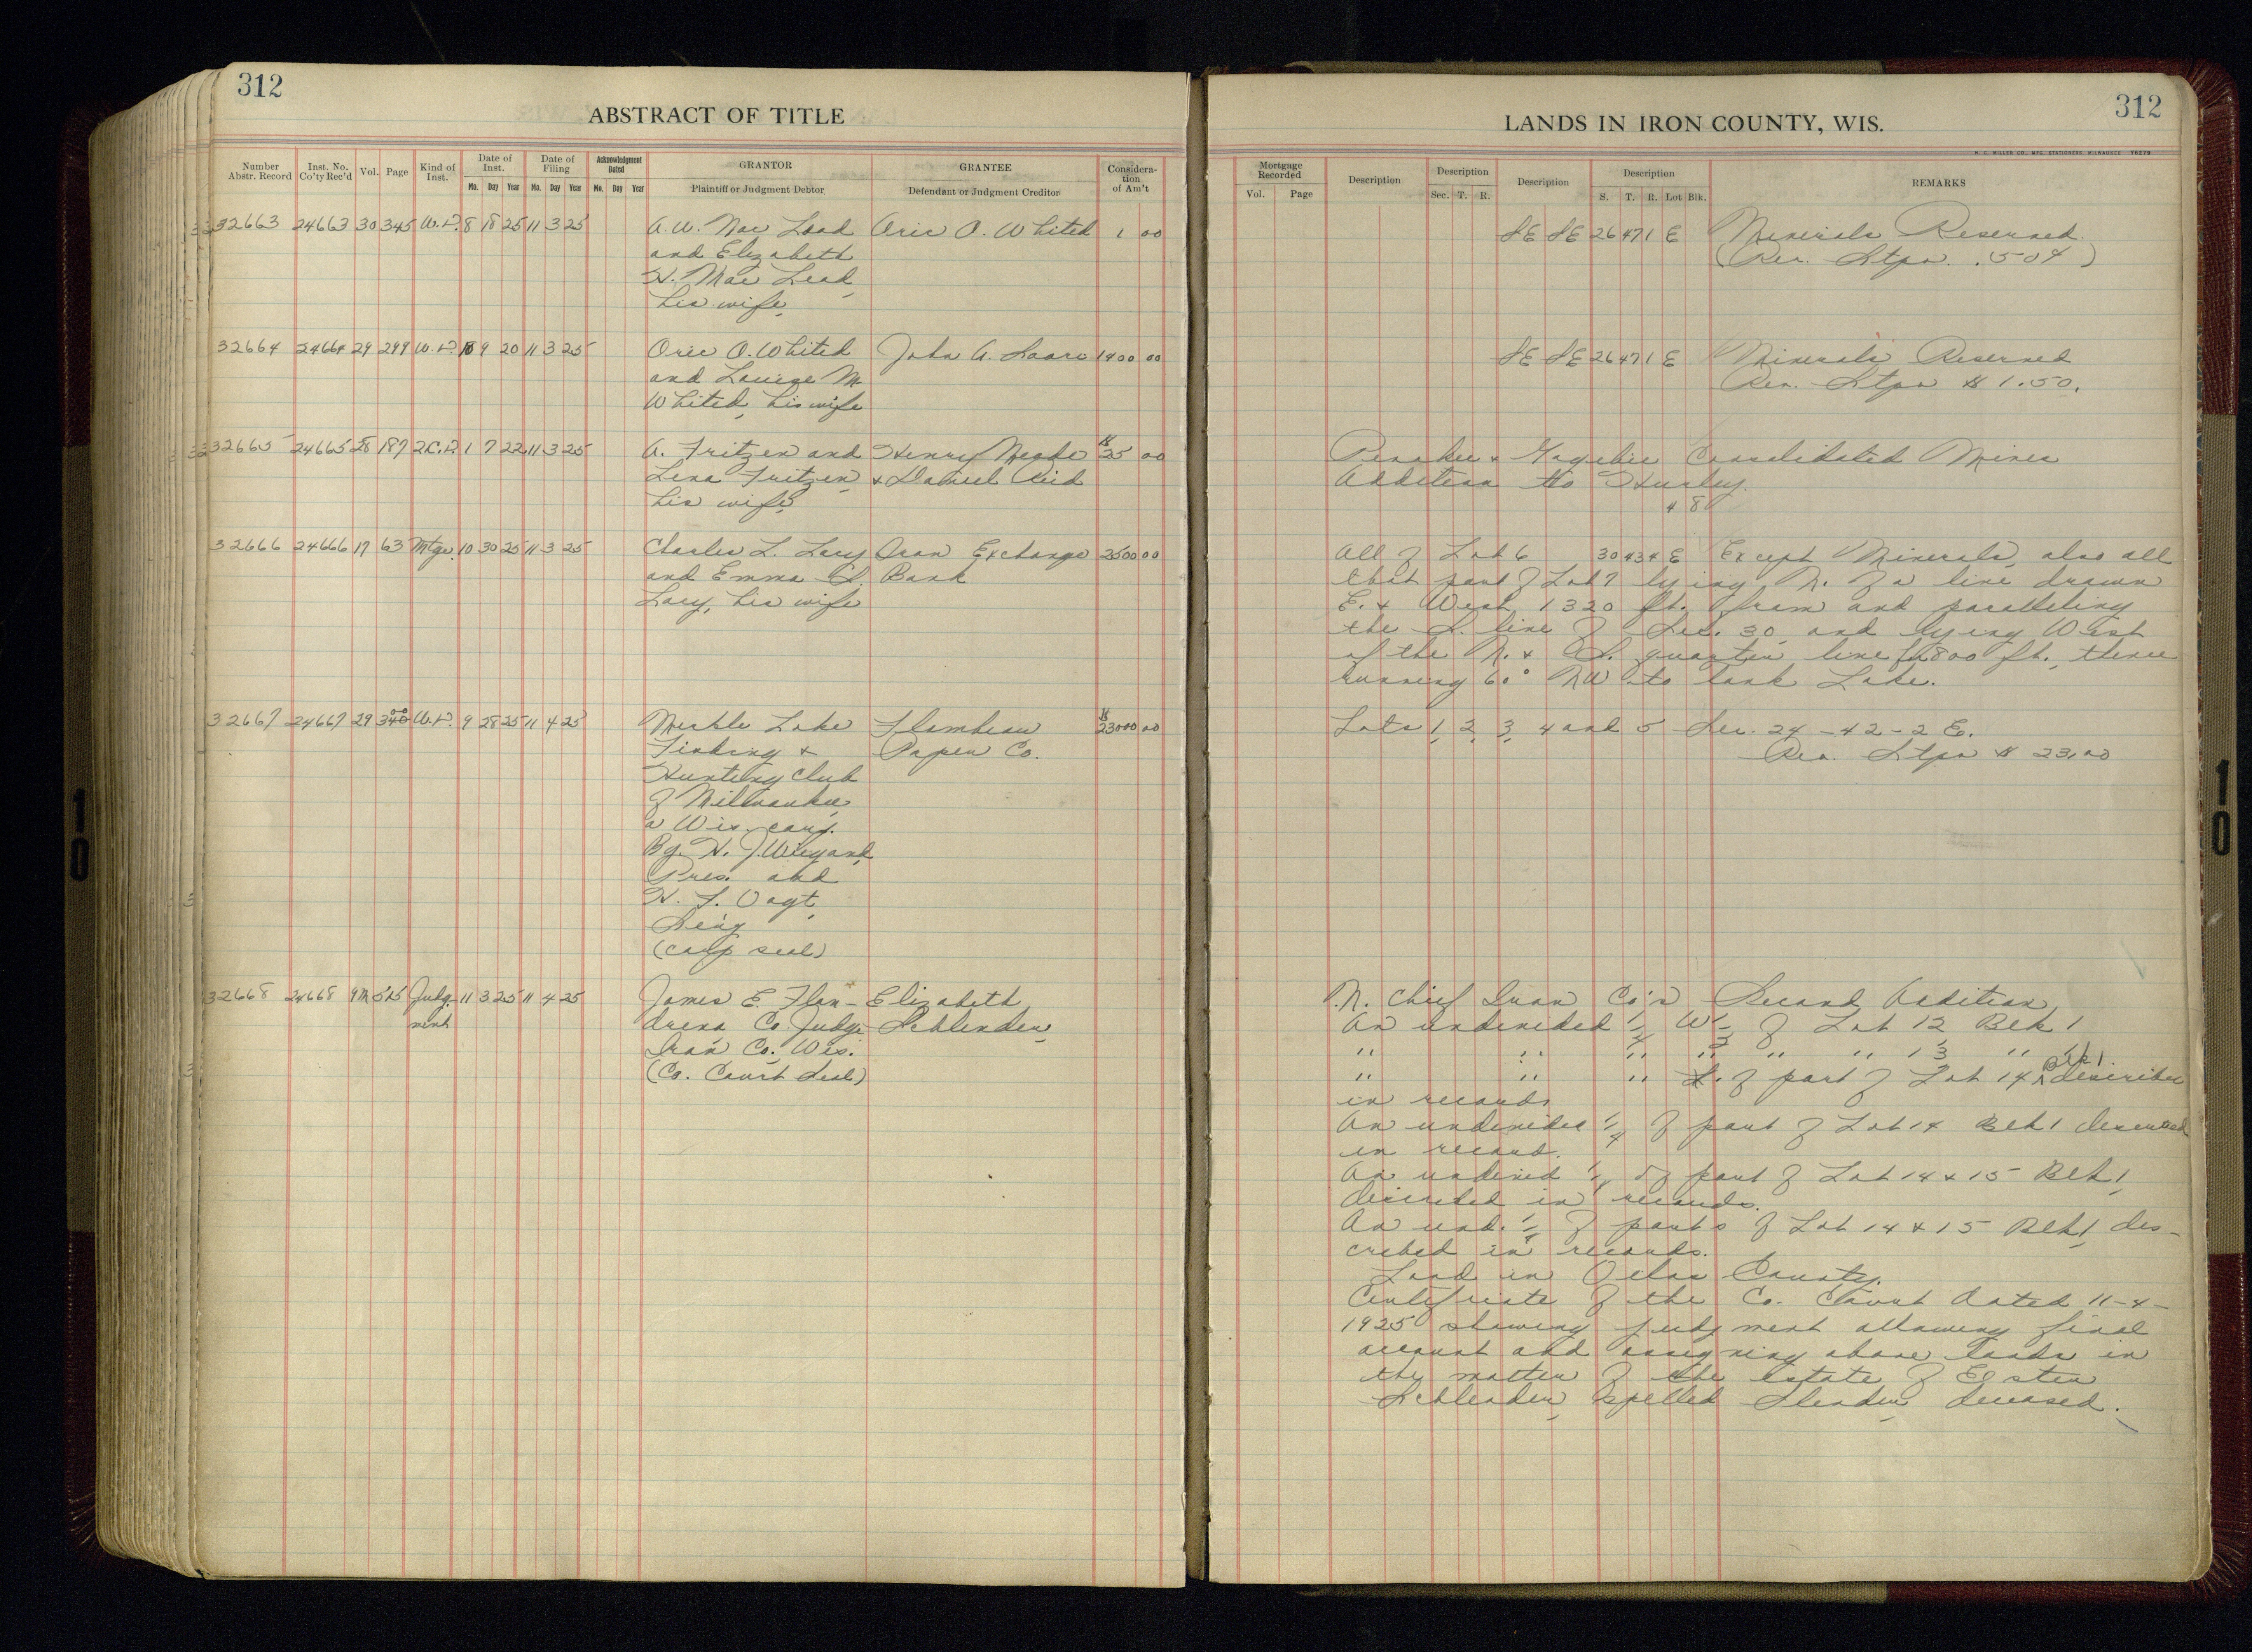 312
ABSTRACT OF TITLE
Number Abstr. Record Inst. No. Co'ty Rec'd Vol. Page Kind of Inst. Date of Inst. Mo. Day Year Date of Filing Mo. Day Year Acknowledgment Dated Mo. Day Year GRANTOR Plaintiff or Judgment Debtor GRANTEE Defendant or Judgment Creditor Consideration of Am't
32663 24663 30 345 W.D. 8 18 25 11 3 25 A. W. Mac Leod Oric O. Whited 1 00
and Elizabeth
H. Mac Leod,
his wife,
32664 24664 29 299 W.D. 10 9 20 11 3 25 Oric O. Whited John A. Saari 1400 00
and Louise M.
Whited, his wife
32665 24665 28 187 2C.D. 1 7 22 11 3 25 A. Fritzen and Henry Meade $25 00
Lena Fritzen, & Daniel Reid
his wife,
32666 24666 17 63 Mtge. 10 30 25 11 3 25 Charles L. Lacy Iron Exchange 2500 00
and Emma S. Bank
Lacy, his wife
32667 24667 29 340 W.D. 9 28 25 11 4 25 Merkle Lake Flambeau $23000 00
Fishing & Paper Co.
Hunting Club
of Milwaukee,
a Wis. corp.
By. H. J. Wiegand,
Pres. and
H. F. Vogt,
Sec'y
(corp seal)
32668 24668 9M 515 Judg- 11 3 25 11 4 25 James E. Flan- Elizabeth
ment drena Co. Judge Schlender,
Iron Co., Wis.
(Co. Court Seal)
312
LANDS IN IRON COUNTY, WIS.
H. C. MILLER CO., MFG. STATIONERS, MILWAUKEE
Mortgage Recorded Vol. Page Description Description Sec. T. R. Description Description S. T. R. Lot Blk. REMARKS
SE SE 26 47 1 E Minerals Reserved.
(Rev. Stps. .50¢)
SE SE 26 47 1 E Minerals Reserved
Rev. Stps $1.50.
Penokee & Gogebic Consolidated Mines
Addition to Hurley.
4 8
All of Lot 6 30 43 4 E Except Minerals, also all
that part of Lot 7 lying N. of a line drawn
E. & West 1320 ft. from and paralleling
the S. line of Sec. 30, and lying West
of the N. & S. quarter line 800 ft., thence
running 60° NW to bank Lake.
Lots 1, 2, 3, 4 and 5 Sec. 24-42-2 E.
Rev. Stps $23.00
N. Chief Iron Co's Second Addition,
An undivided 1/4 W 1/2 of Lot 12, Blk 1
" " " " " " 13 " "
" " " S. of part of Lot 14 Blk 1. described
in records
An undivided 1/4 of part of Lot 14 Blk 1 described
in record.
An undivid 1/4 of part of Lot 14 & 15 Blk 1,
described in records.
An und. 1/4 of parts of Lot 14 & 15 Blk 1, des-
cribed in records.
Land in Vilas County.
Certificate of the Co. Court dated 11-4-
1925 showing judgment allowing final
account and assigning above lands in
the matter of the estate of
Schlender, spelled Slender, deceased.